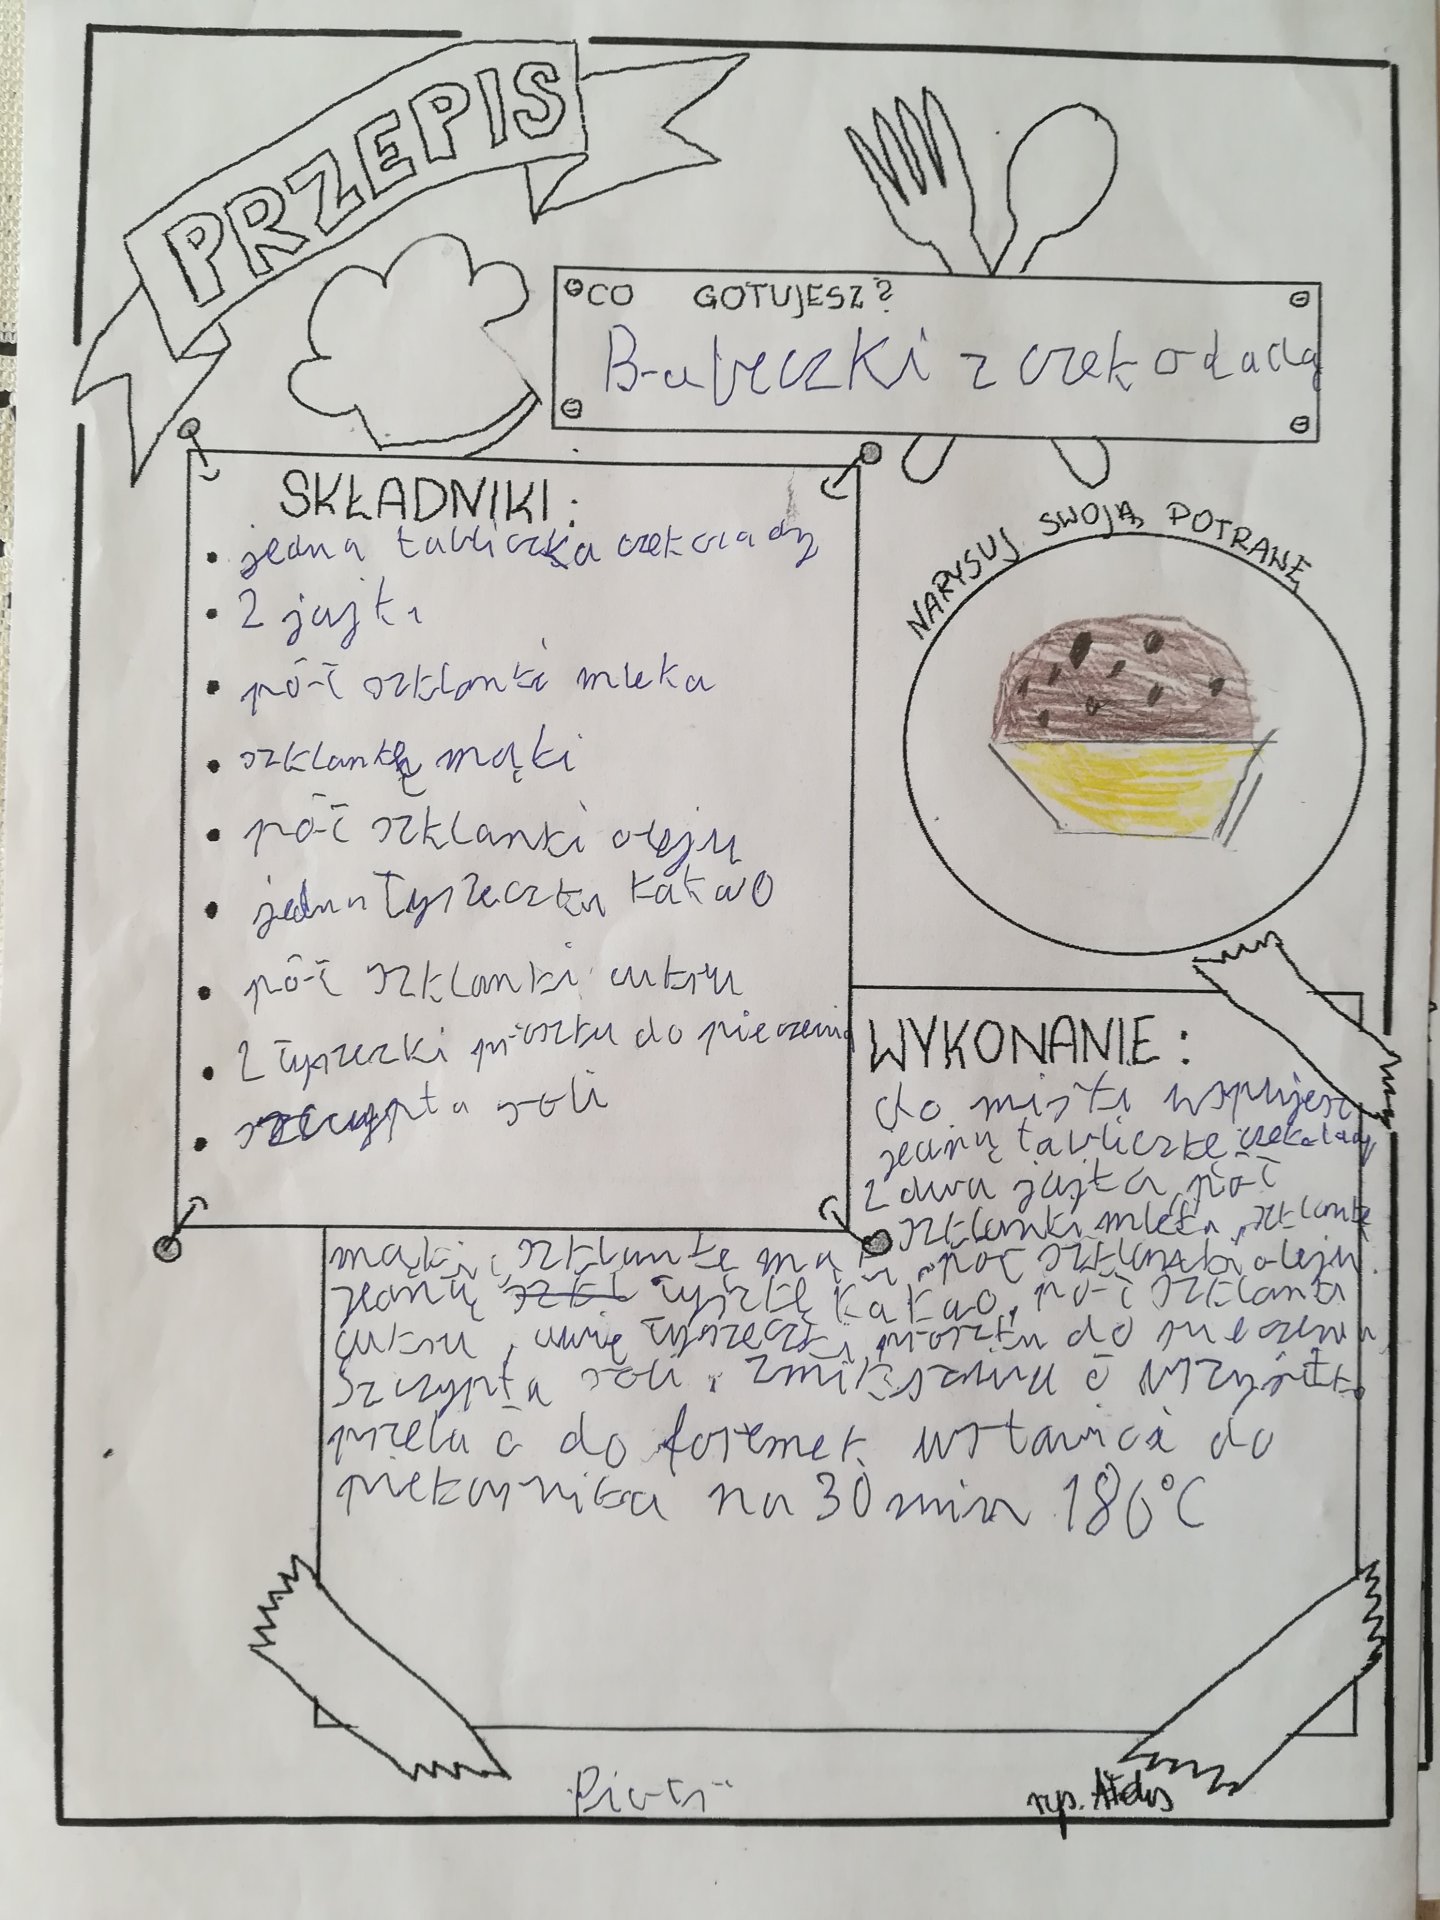 PRZEPIS
CO GOTUJESZ?
Babeczki z czekoladą
SKŁADNIKI:
• jedna tabliczka czekolady
• 2 jajka
• pół szklanki mleka
• szklankę mąki
• pół szklanki oleju
• jedna łyżeczka kakao
• pół szklanki cukru
• 2 łyżeczki proszku do pieczenia
• szczypta soli
NARYSUJ SWOJĄ POTRANĘ
WYKONANIE:
do miski wsypujesz
jedną tabliczkę czekolady
2 dwa jajka, pół
szklanki mleka, szklankę
mąki, szklankę mąki, pół szklanki oleju.
jedną łyżkę kakao, pół szklanki
cukru, łyżeczki proszku do pieczenia
szczypta soli. zmiksować wszystko
przelać do foremek wstawić do
piekarnika na 30 min 180°C
Piotr
rys.